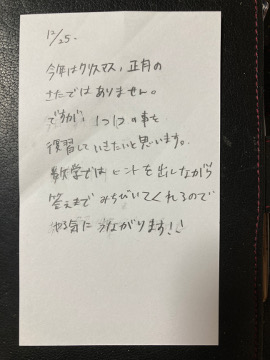 12/25.
今年はクリスマス、正月の
さたではありません。
ですが、1つ1つの事を
復習していきたいと思います。
数学ではヒントを出しながら
答えまでみちびいてくれるので
やる気につながります!!